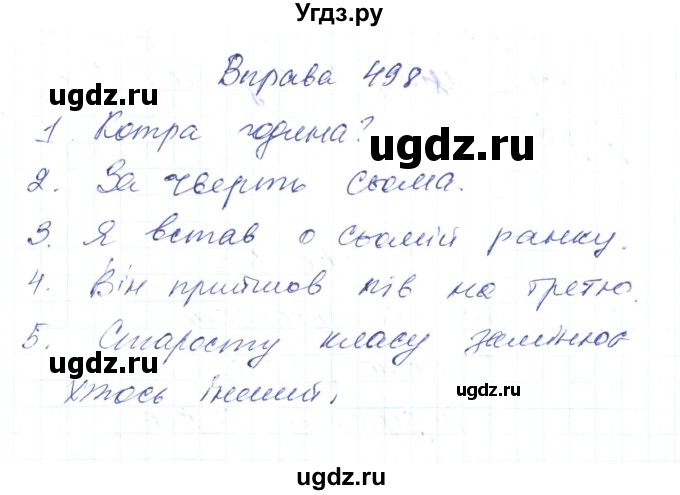 Угдз.ру
Вправа 498
ugdz.ru
1 Котра година?
ugdz.ru
2. За чверть сьома.
3. Я встав о сьомій ранку.
ugdz.ru
4. Він прийшов пів на третю.
5. Старосту класу замінює
ugdz.ru
хтось інший.
ugdz.ru
ugdz.ru